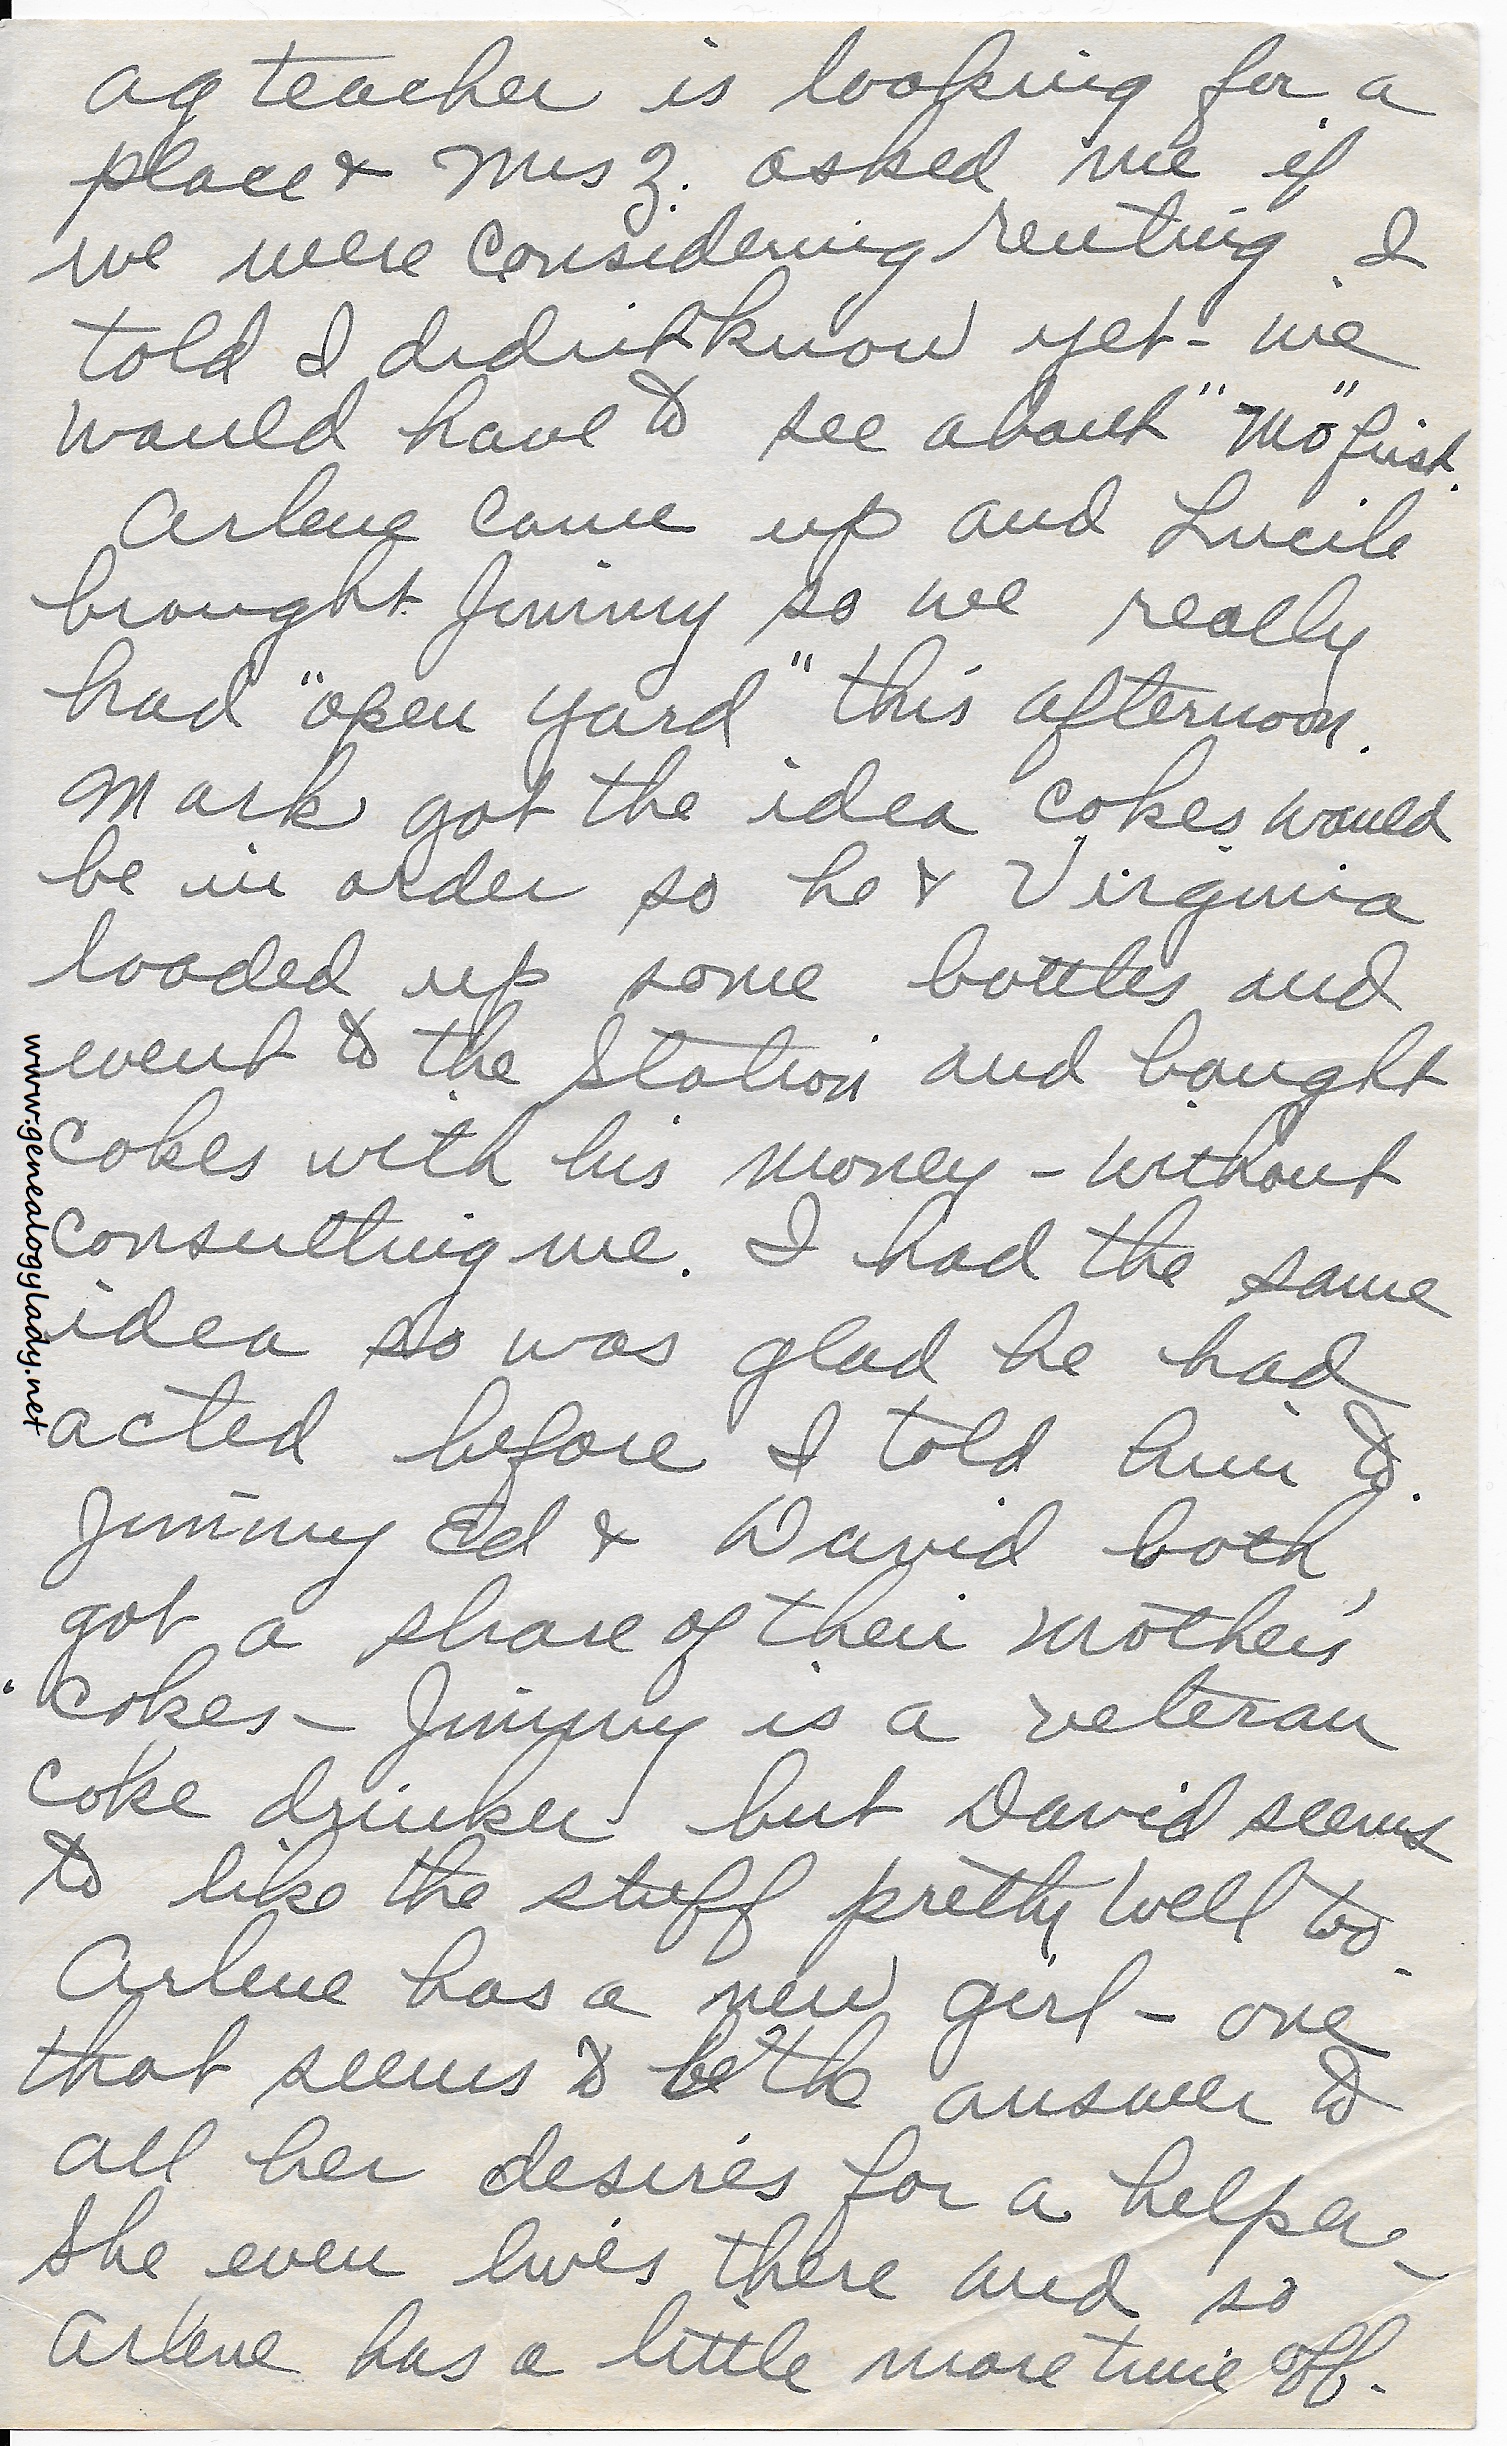 ag teacher is looking for a
place & Mrs Z. asked me if
we were considering renting. I
told I didn't know yet - we
would have to see about "Mo" first.
Arlene came up and Lucile
brought Jimmy so we really
had "open yard" this afternoon.
Mark got the idea cokes would
be in order so he & Virginia
loaded up some bottles and
went to the Station and bought
cokes with his money - without
consulting me. I had the same
idea so was glad he had
acted before I told him to.
Jimmy Ed & David both
got a share of their mother's
cokes - Jimmy is a veteran
coke drinker but David seems
to like the stuff pretty well too.
Arlene has a new girl - one
that seems to be the answer to
all her desires for a helper -
She even lives there and so
Arlene has a little more time off.
www.genealogylady.net